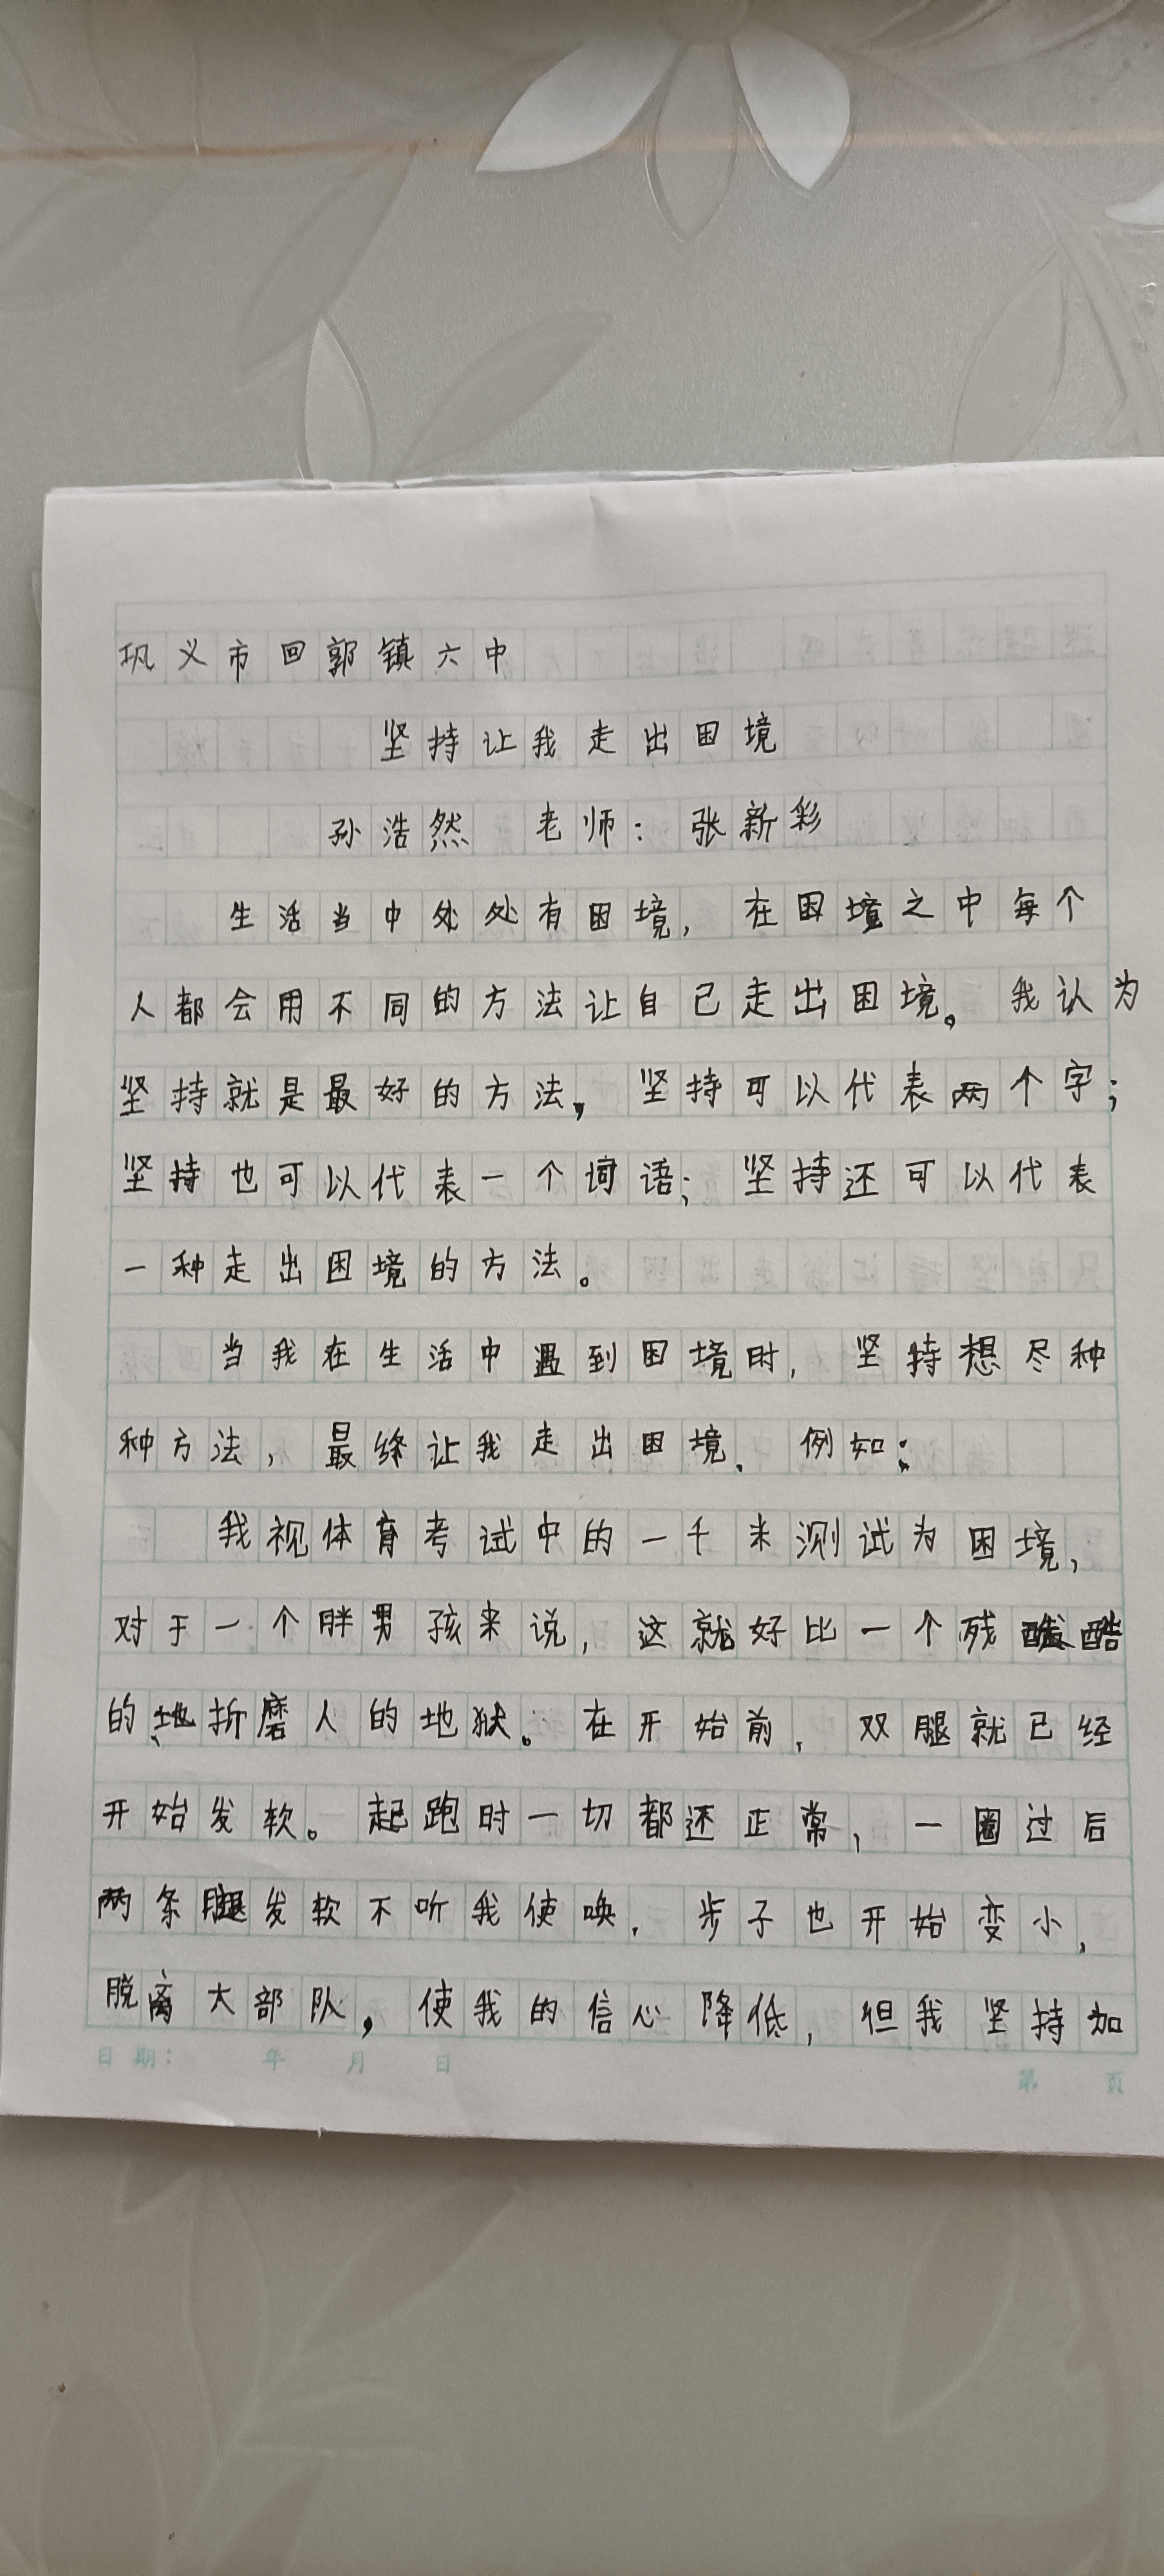 巩义市回郭镇六中
坚持让我走出困境
孙浩然 老师：张新彩
生活当中处处有困境，在困境之中每个
人都会用不同的方法让自己走出困境。我认为
坚持就是最好的方法，坚持可以代表两个字；
坚持也可以代表一个词语；坚持还可以代表
一种走出困境的方法。
当我在生活中遇到困境时，坚持想尽种
种方法，最终让我走出困境．例如：
我视体育考试中的一千米测试为困境，
对于一个胖男孩来说，这就好比一个残酷
的、折磨人的地狱。在开始前，双腿就已经
开始发软。起跑时一切都还正常，一圈过后
两条腿发软不听我使唤．步子也开始变小，
脱离大部队，使我的信心降低，但我坚持加
日期： 年 月 日
第 页